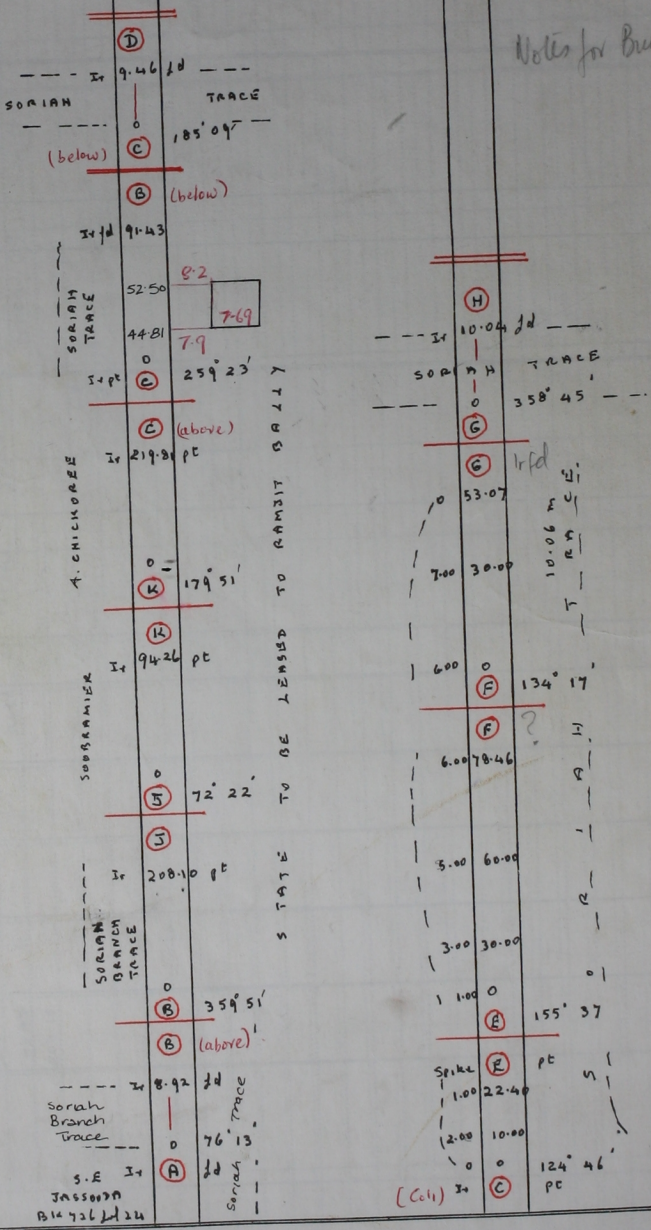 D
Ir 9.46 fd
SORIAH TRACE
0
185° 09'
(below) C
B (below)
Ir fd 91.43
8.2
52.50
7.69
44.81
7.9
SORIAH
TRACE
0
259° 23'
Ir pt C
C (above)
Ir 219.81 pt
A. CHICKOREE
0
K 179° 51'
K
Ir 94.26 pt
SOOBRAMIER
0
J 72° 22'
J
Ir 208.10 pt
SORIAH
BRANCH
TRACE
0
B 359° 51'
B (above)
Ir 8.92 fd
Soriah
Branch
Trace
0 76° 13'
S.E Ir A fd
JASSOODA
Soriah Trace
STATE TO BE LEASED TO RAMJIT BALLY
Notes for
H
Ir 10.04 fd
SORIAH TRACE
0 358° 45'
G
G Ir fd
0 53.07
7.00 30.00
10.06 m
6.00 0
F 134° 17'
F ?
6.00 78.46
5.00 60.00
3.00 30.00
1.00 0
E 155° 37
SORIAH TRACE
Spike E pt
1.00 22.40
2.00 10.00
0 0 124° 46'
Ir C pt